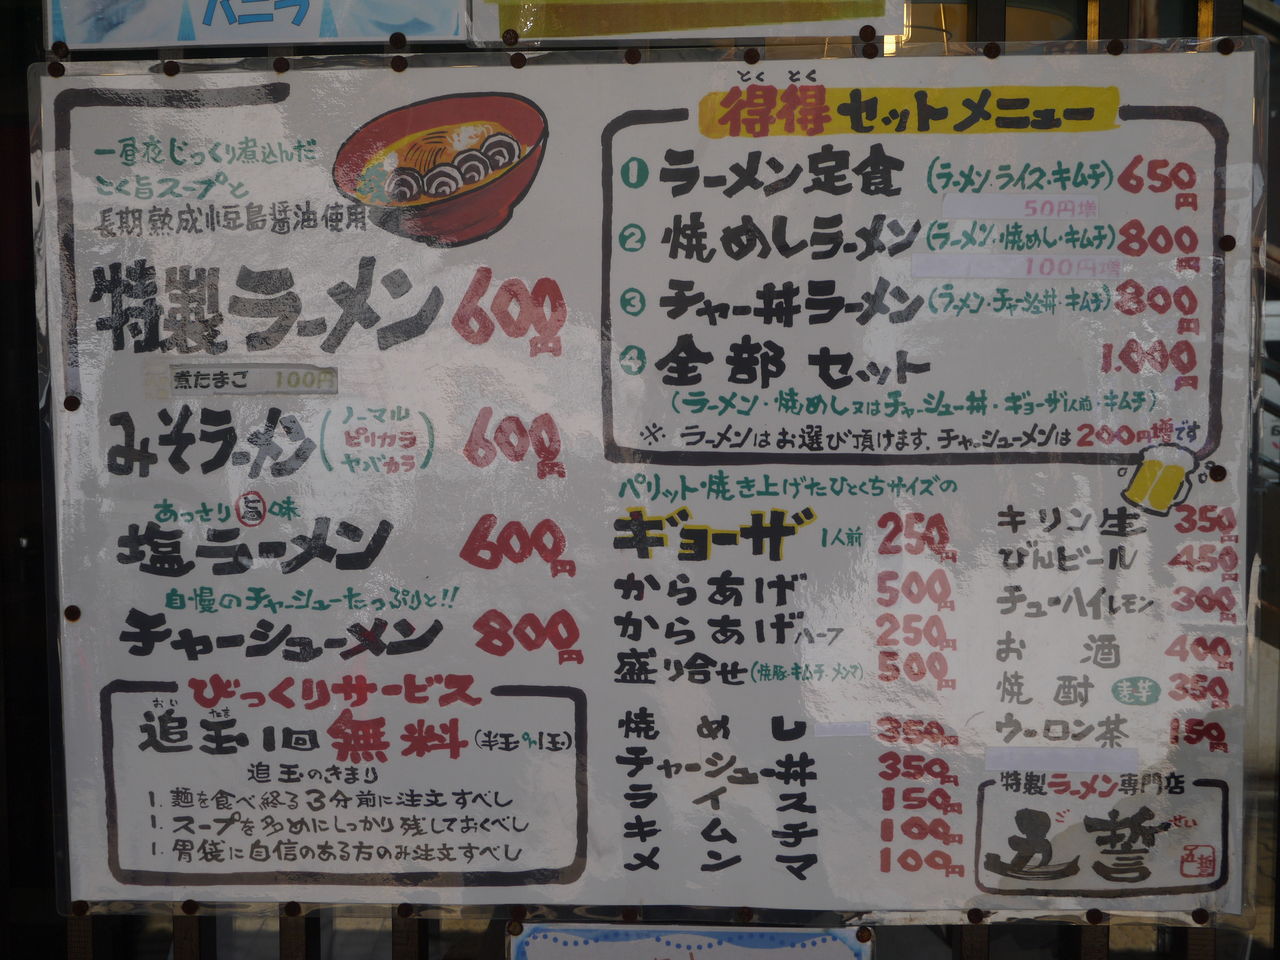 バニラ
一昼夜じっくり煮込んだ
とく旨スープと
長期熟成小豆島醤油使用
特製ラーメン 600円
煮たまご 100円
みそラーメン (ノーマル ピリカラ ヤバカラ) 600円
あっさり旨味
塩ラーメン 600円
自慢のチャーシューたっぷりと!!
チャーシューメン 800円
びっくりサービス
おい たま
追玉1回無料 (半玉or1玉)
追玉のきまり
1. 麺を食べ終る3分前に注文すべし
1. スープを多めにしっかり残しておくべし
1. 胃袋に自信のある方のみ注文すべし
とく とく
得得セットメニュー
1 ラーメン定食 (ラーメン・ライス・キムチ) 650円
50円増
2 焼めしラーメン (ラーメン・焼めし・キムチ) 800円
100円増
3 チャー丼ラーメン (ラーメン・チャーシュー丼・キムチ) 800円
4 全部セット 1.000円
(ラーメン・焼めし又はチャーシュー丼・ギョーザ1人前・キムチ)
※ ラーメンはお選び頂けます。チャーシューメンは200円増です
パリット・焼き上げたひとくちサイズの
ギョーザ 1人前 250円
からあげ 500円
からあげハーフ 250円
盛り合せ (焼豚・キムチ・メンマ) 500円
焼めし 350円
チャーシュー丼 350円
ライス 150円
キムチ 100円
メンマ 100円
キリン生 350円
びんビール 450円
チューハイレモン 300円
お酒 400円
焼酎 麦芋 350円
ウーロン茶 150円
特製ラーメン専門店
ご せい
五誓
五誓